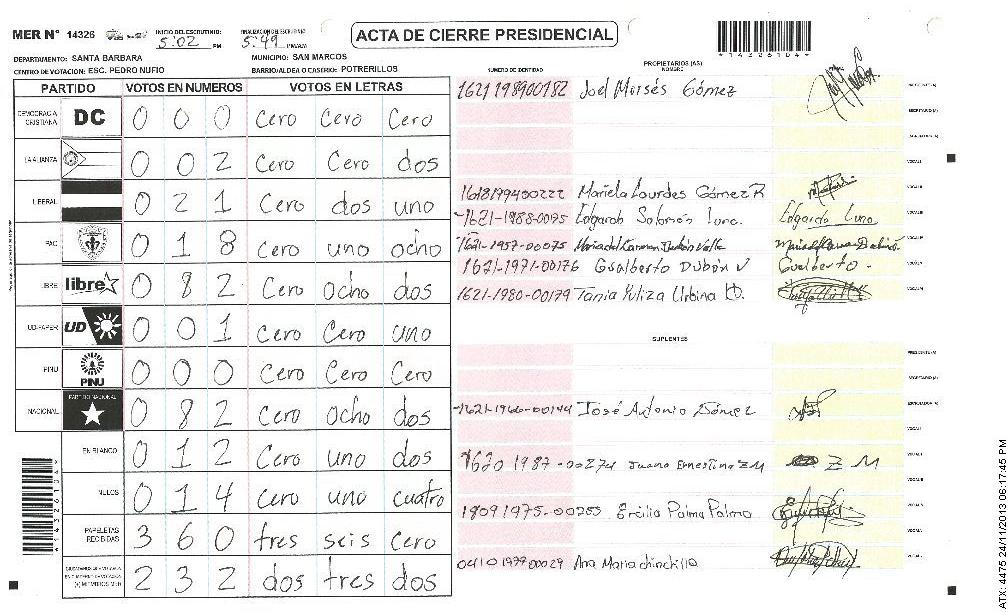 MER N° 14326
INICIO DEL ESCRUTINIO: 5:02 PM
FINALIZACION DEL ESCRUTINIO: 5:49 PM/AM
ACTA DE CIERRE PRESIDENCIAL
DEPARTAMENTO: SANTA BARBARA
MUNICIPIO: SAN MARCOS
CENTRO DE VOTACION: ESC. PEDRO NUFIO
BARRIO/ALDEA O CASERIO: POTRERILLOS
PARTIDO VOTOS EN NUMEROS VOTOS EN LETRAS
DEMOCRACIA CRISTIANA DC 0 0 0 Cero Cero Cero
LA ALIANZA 0 0 2 Cero Cero dos
LIBERAL 0 2 1 Cero dos uno
PAC 0 1 8 Cero uno ocho
LIBRE libre 0 8 2 Cero Ocho dos
UD-FAPER UD 0 0 1 Cero Cero uno
PINU PINU 0 0 0 Cero Cero Cero
NACIONAL PARTIDO NACIONAL 0 8 2 Cero Ocho dos
EN BLANCO 0 1 2 Cero uno dos
NULOS 0 1 4 Cero uno cuatro
PAPELETAS RECIBIDAS 3 6 0 tres seis cero
2 3 2 dos tres dos
NUMERO DE IDENTIDAD
PROPIETARIOS (AS)
NOMBRE
1621198900182 Joel Moisés Gómez
1618199400222 Mariela Lourdes Gómez R
1621-1988-0095 Edgardo Salomón Luna. Edgardo Luna
1621-1957-00075 Maria del Carmen Dubón Valle
1621-1971-00176 Gualberto Dubón V Gualberto.
1621-1980-00179 Tania Yuliza Urbina
SUPLENTES
1621-1966-00144 José Antonio Gómez
1620 1987-00274 Juana Ernestina Z M Z M
18091975-00253 Ercilia Palma Palma
0410 1979 00029 Ana Maria chinchilla
ATX: 4475 24/11/2013 06:17:45 PM